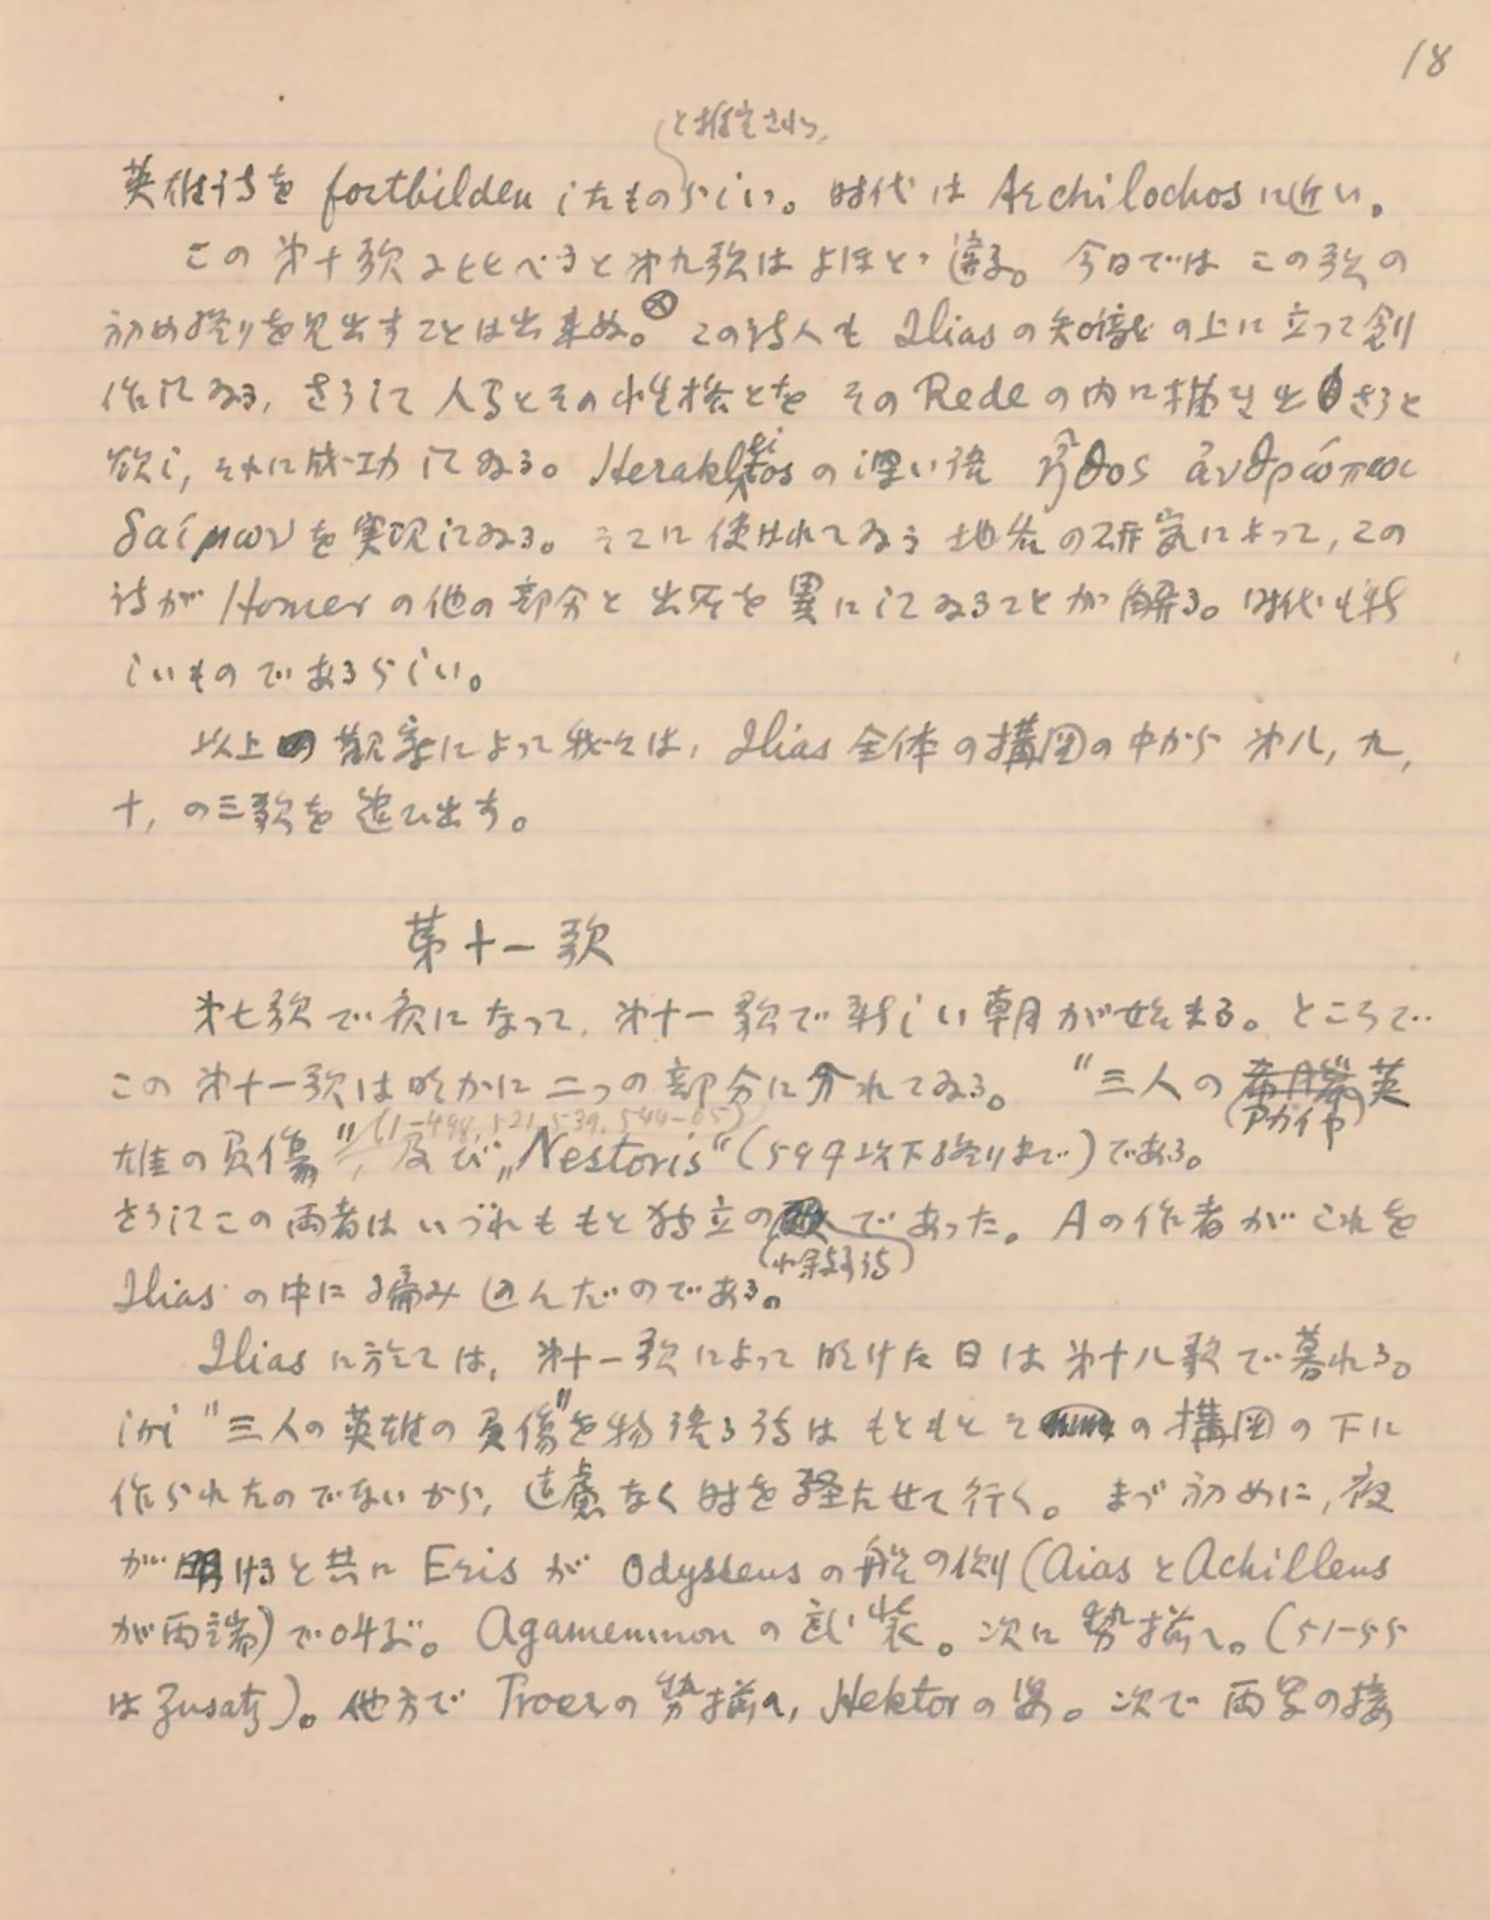 18
と推定され
英雄詩を fortbilden したものらしい。時代は Archilochos に近い。
この第十歌に比べると第九歌はよほど違る。今日では この歌の
初め終りを見出すことは出来ぬ。⊗ この詩人も Ilias の知識の上に立って創
作してゐる, さうして人るとその性格とを その Rede の内に描き出さうと
欲し, それに成功してゐる。Herakleitos の深い語 ἦθος ἀνθρώπωι
δαίμων を実現してゐる。そこに使はれてゐる地名の研究によって, この
詩が Homer の他の部分と出所を異にしてゐることが解る。時代も新
しいものであるらしい。
以上の観察によって我々は, Ilias 全体の構図の中から 第八, 九,
十, の三歌を追ひ出す。
第十一歌
第七歌で夜になって, 第十一歌で新しい朝が始まる。ところで
この第十一歌は明かに二つの部分に分れてゐる。 "三人の 英
(アカイヤ)
(1-498, 521-539, 544-65)
雄の負傷", 及び „Nestoris“ (599以下終りまで) である。
さうしてこの両者はいづれももと独立の であった。Aの作者がこれを
(小叙事詩)
Ilias の中に編み込んだのである。
Ilias に於ては, 第十一歌によって明けた日は第十八歌で暮れる。
しかし "三人の英雄の負傷"を物語る詩はもともとその構図の下に
作られたのでないから, 遠慮なく時を経たせて行く。まづ初めに, 夜
が明けると共に Eris が Odysseus の船の側 (Aias と Achilleus
が両端) で呼ぶ。Agamemnon の武装。次に勢揃へ。(51-55
は Zusatz)。他方で Troer の勢揃へ, Hektor の姿。次で両軍の接